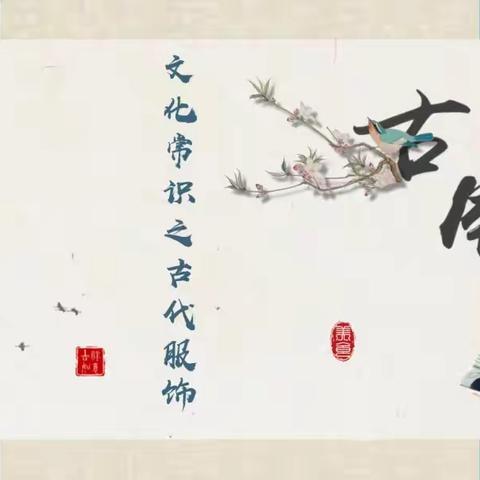 文化常识之古代服饰
古